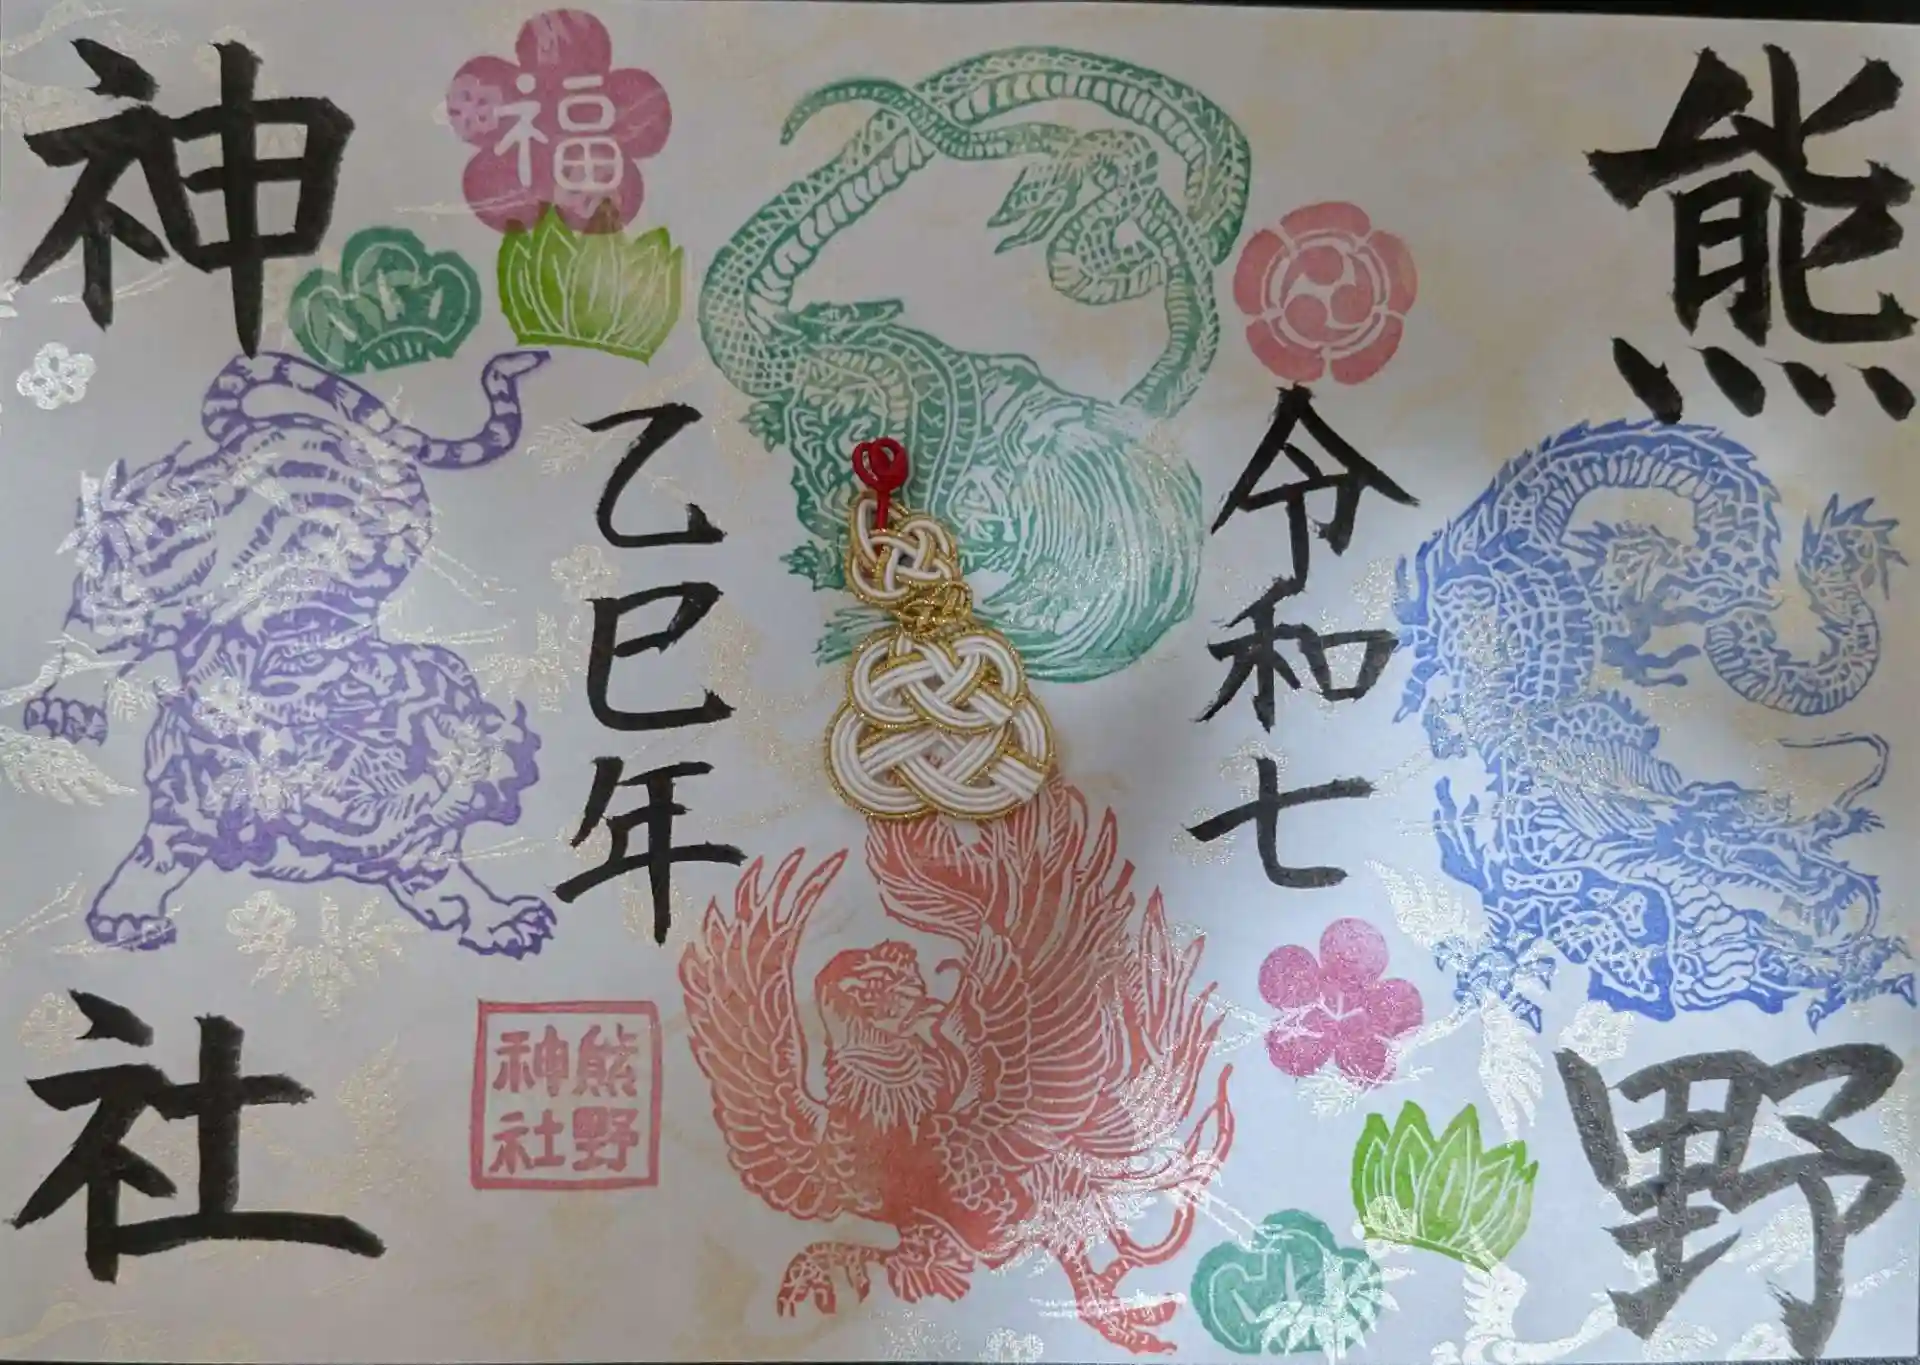 熊野
令和七
乙巳年
福
神社
熊野
神社